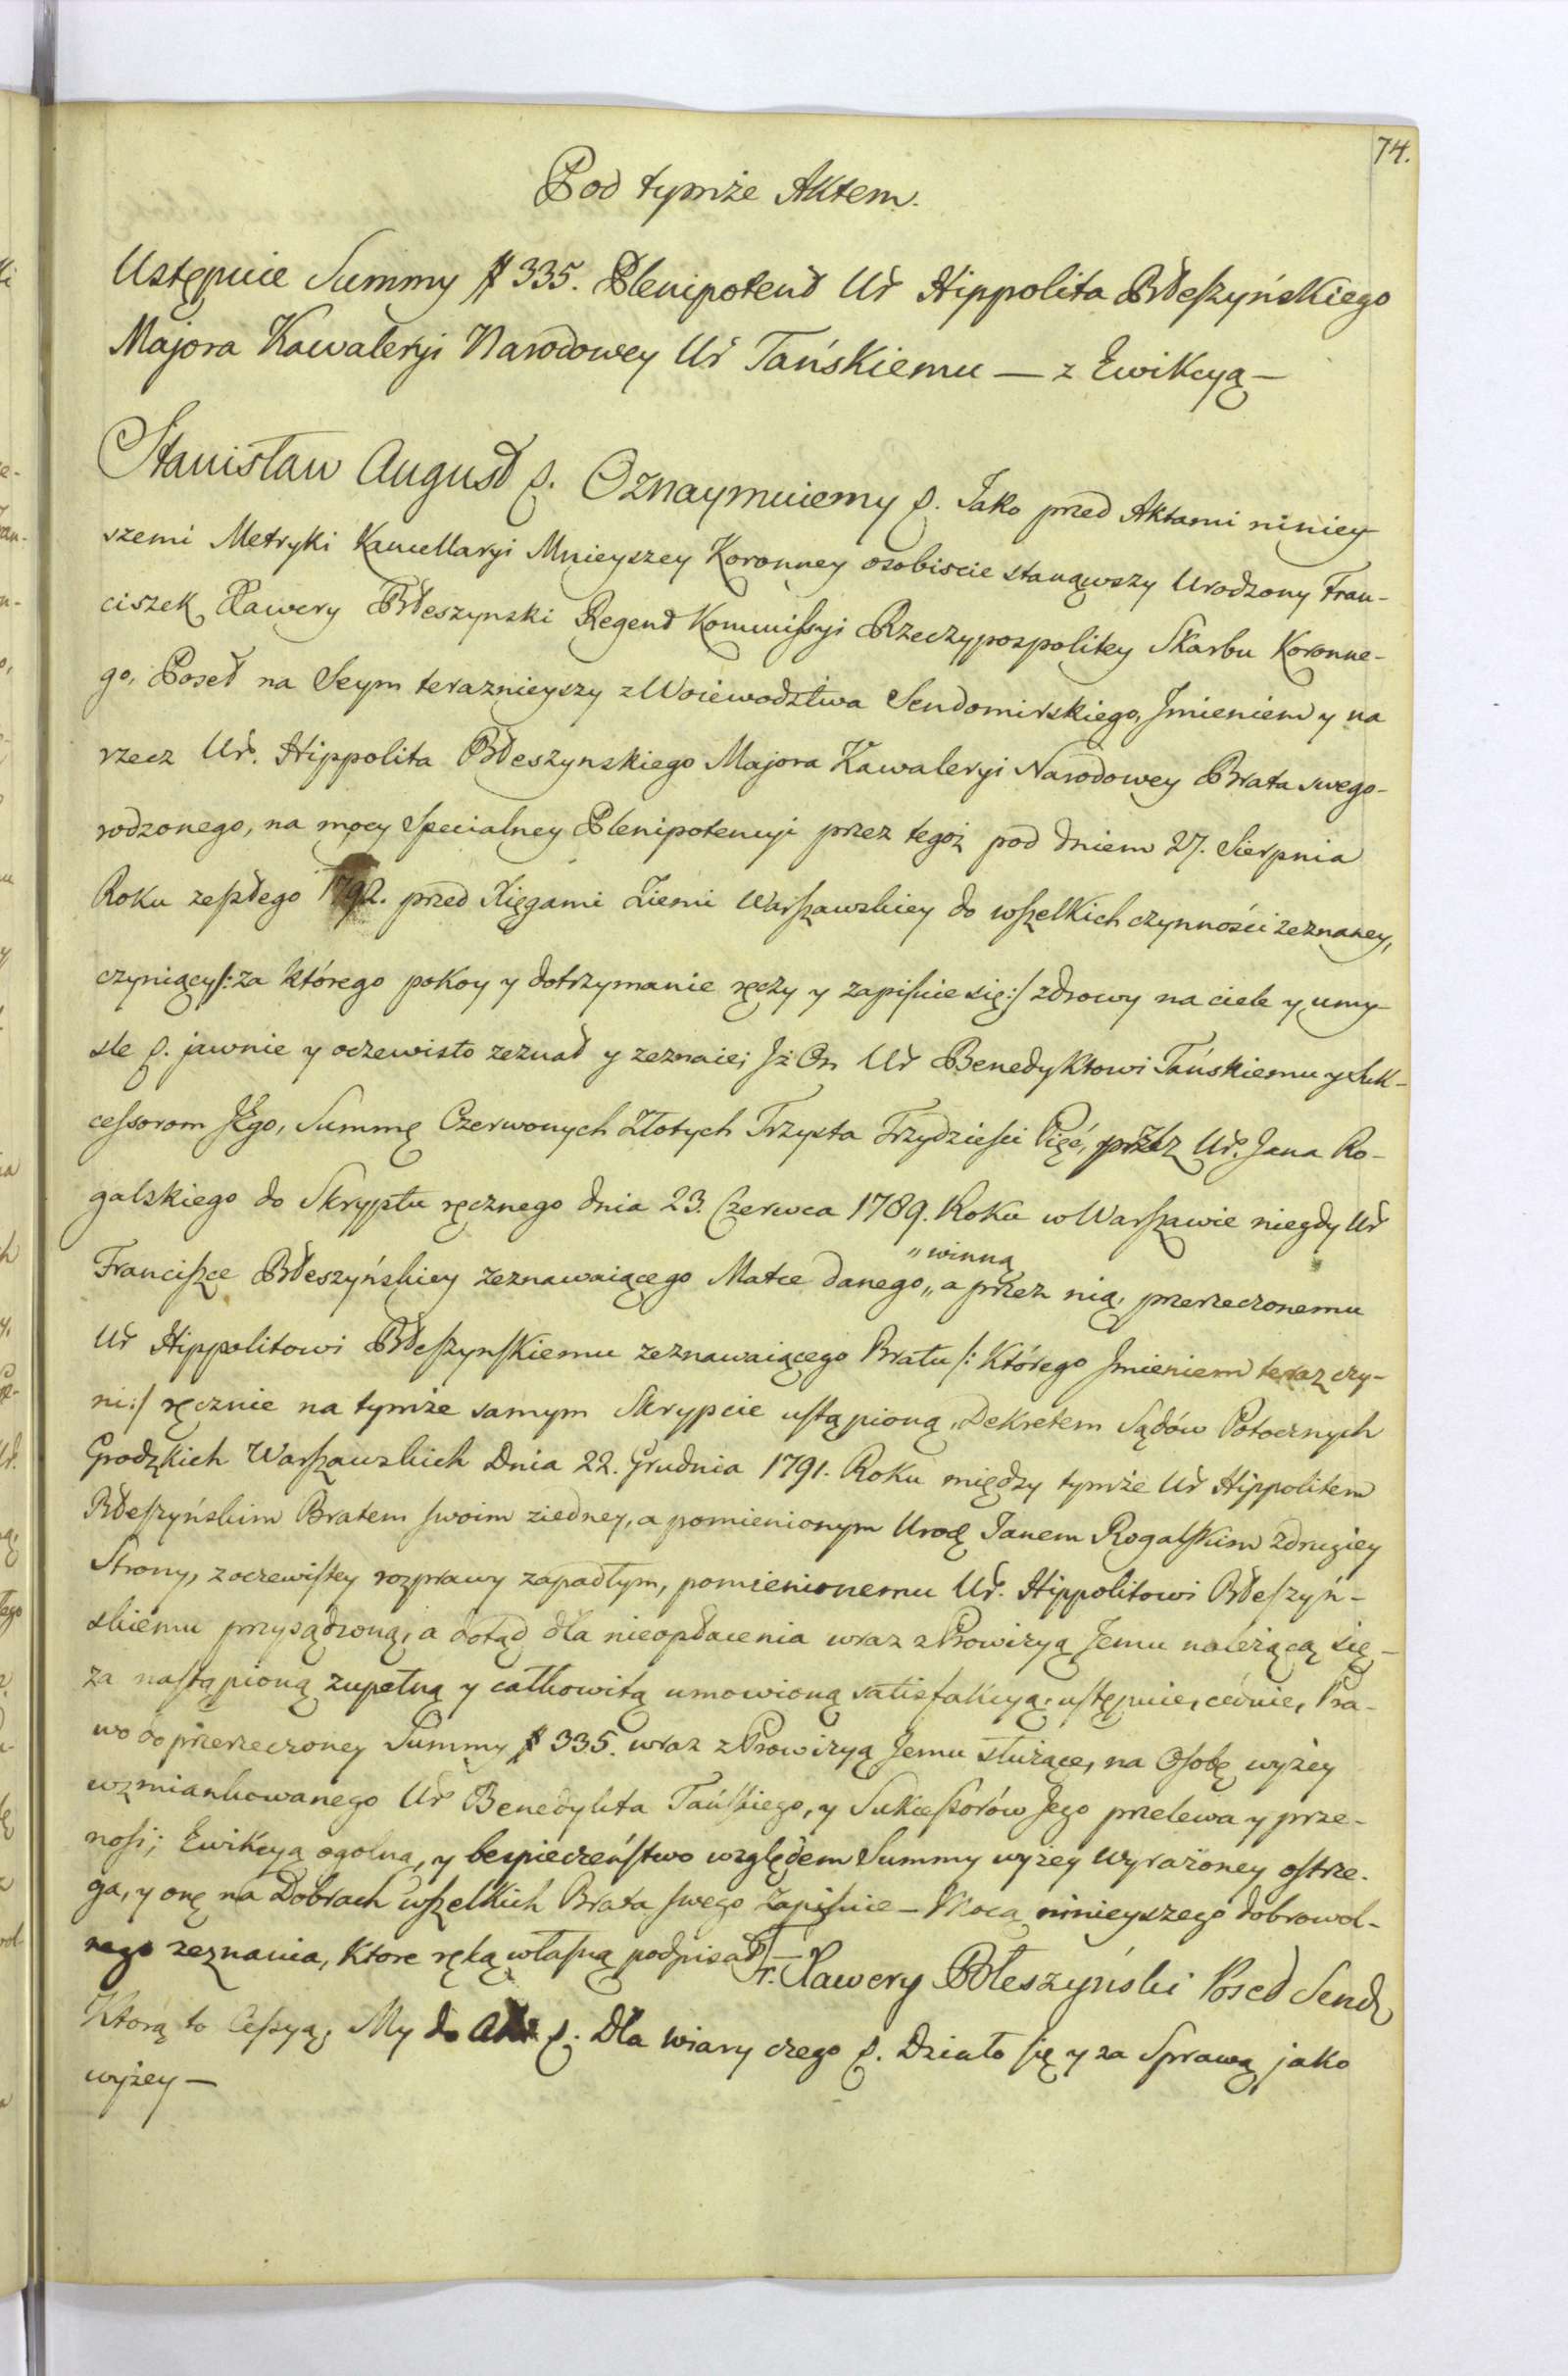 74.
Pod tymże Aktem.
Ustępuie Summy # 335. Plenipotent Ur Hippolita Błeszyńskiego
Majora Kawaleryi Narodowey Ur Tańskiemu — z Ewikcyą —
Stanisław August p. Oznaymuiemy p. Jako przed Aktami niniey-
szemi Metryki Kancellaryi Mnieyszey Koronney osobiscie stanąwszy Urodzony Fran-
ciszek Xawery Błeszynski Regent Kommissyi Rzeczypospolitey Skarbu Koronne-
go, Poseł na Seym teraznieyszy z Woiewodztwa Sendomirskiego, Jmieniem y na
rzecz Ur. Hippolita Błeszynskiego Majora Kawaleryi Narodowey Brata swego-
rodzonego, na mocy specialney Plenipotencyi przez tegoż pod dniem 27. Sierpnia
Roku zeszłego 1792. przed Xięgami Ziemi Warszawskiey do wszelkich czynności zeznaney,
czyniący /: za którego pokoy y dotrzymanie ręczy y zapisuie się :/ zdrowy na ciele y umy-
sle p. jawnie y oczewisto zeznał y zeznaie; Jż On Ur Benedyktowi Tańskiemu y Suk-
cessorom JEgo, Summę Czerwonych Złotych Trzysta Trzydzieści Pięć, przez Ur. Jana Ro-
galskiego do Skryptu ręcznego dnia 23. Czerwca 1789. Roku w Warszawie niegdy Ur
„winną
Franciszce Błeszyńskiey zeznawaiącego Matce danego „ a przez nią, przerzeczonemu
Ur Hippolitowi Błeszynskiemu zeznawaiącego Bratu /: Którego Jmieniem teraz czy-
ni :/ ręcznie na tymże samym Skrypcie ustąpioną, Dekretem Sądów Potocznych
Grodzkich Warszawskich Dnia 22. Grudnia 1791. Roku między tymże Ur Hippolitem
Błeszyńskim Bratem swoim ziedney, a pomienionym Urodz Janem Rogalskim zdrugiey
Strony, z oczewistey rozprawy zapadłym, pomienionemu Ur. Hippolitowi Błeszyń-
skiemu przysądzoną, a dotąd dla nieopłacenia wraz z Prowizyą Jemu należącą się —
za nastąpioną zupełną y całkowitą umowioną satisfakcyą, ustępuie, ceduie, Pra-
wo do przerzeczoney Summy # 335. wraz z Prowizyą Jemu służące, na Osobę wyżey
wzmiankowanego Ur Benedykta Tańskiego, y Sukcessorów Jego przelewa y prze-
nosi; Ewikcyą ogolną, y bespieczeństwo względem Summy wyżey wyrażoney ostrze-
ga, y onę na Dobrach wszelkich Brata swego zapisuie — Mocą ninieyszego dobrowol-
nego zeznania, Ktore ręką własną podpisał — Fr. Xawery Błeszyński Poseł Send.
Ktorą to Cessyą, My do Akt p. Dla wiary czego p. Działo się y za Sprawą jako
wyżey —